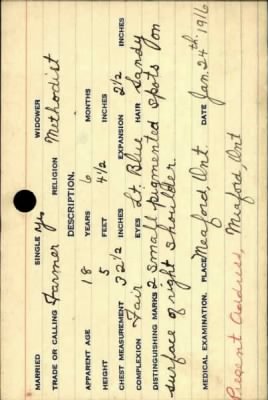 MARRIED SINGLE Yes WIDOWER
TRADE OR CALLING Farmer RELIGION Methodist
DESCRIPTION.
APPARENT AGE 18 YEARS 6 MONTHS
HEIGHT 5 FEET 4 1/2 INCHES
CHEST MEASUREMENT 32 1/2 INCHES EXPANSION 2 1/2 INCHES
COMPLEXION Fair EYES Lt. Blue HAIR Sandy
DISTINGUISHING MARKS 2 small pigmented spots on
surface of right shoulder
MEDICAL EXAMINATION. PLACE Meaford, Ont. DATE Jan. 24th. 1916
Present Address, Meaford, Ont